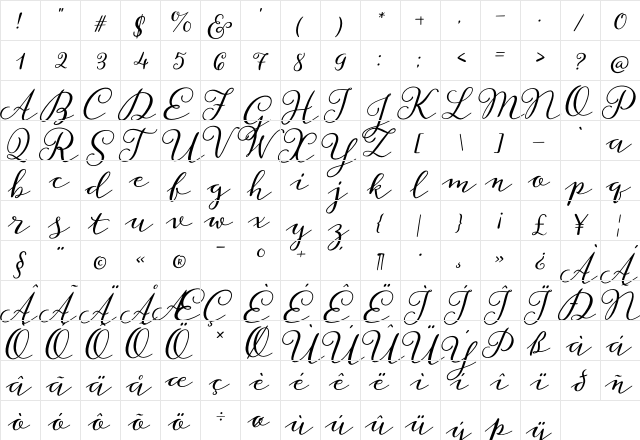 ! " # $ % & ' ( ) * + , - . / 0
1 2 3 4 5 6 7 8 9 : ; < = > ? @
A B C D E F G H I J K L M N O P
Q R S T U V W X Y Z [ \ ] — ` a
b c d e f g h i j k l m n o p q
r s t u v w x y z { | } ¡ £ ¥ ¦
§ ¨ © « ® ¯ ° + ´ ¶ · ¸ » ¿ À Á
Â Ã Ä Å Æ Ç È É Ê Ë Ì Í Î Ï Ð Ñ
Ò Ó Ô Õ Ö × Ø Ù Ú Û Ü Ý Þ ß à á
â ã ä å æ ç è é ê ë ì í î ï ð ñ
ò ó ô õ ö ÷ ø ù ú û ü ý þ ÿ